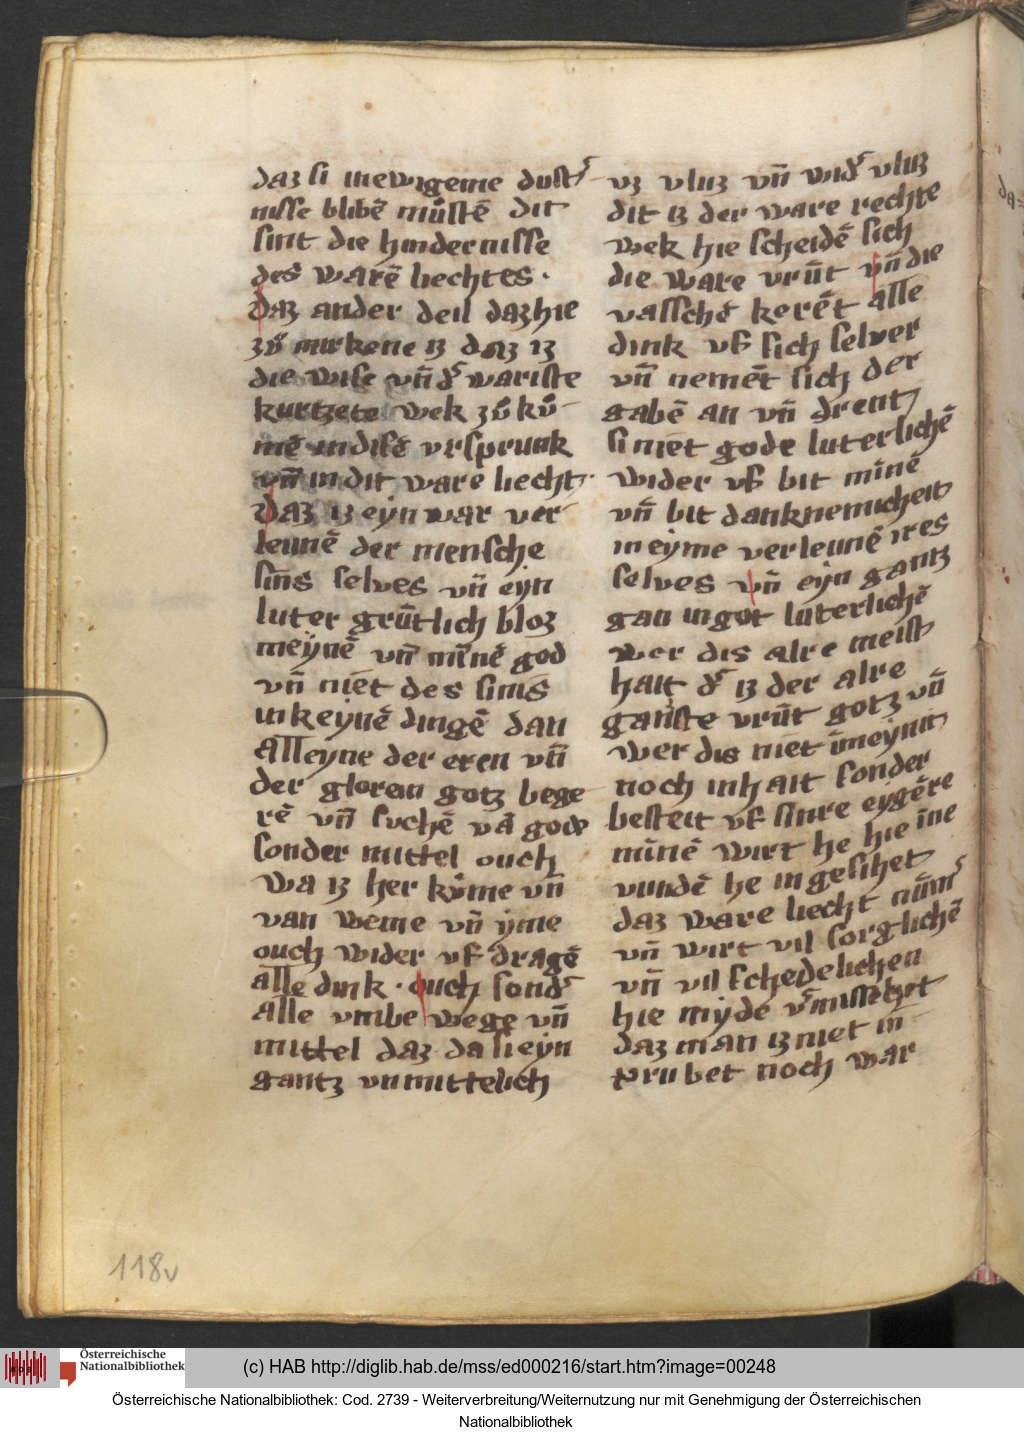 daz si in ewigeme dust͛
nisse blibē mu̾stē dit
sint die hindernisse
des warē liechtes ·
Daz ander deil daz hie
zu̾ mirkene iz daz iz
die wise vn̄ d͛ wariste
kurtzete wek zu̾ ku̾
mē in disē vrsprunk
vn̄ in dit ware liecht·
Daz iz eyn war ver
leunē der mensche
sins selves vn̄ eyn
luter gru̅tlich bloz
meynē vn̄ minē god
vn̄ niet des sinis
in keynē dingē dan
alleyne der eren vn̄
der glorein gotz bege
rē vn̄ suchē vā gode
sonder mittel ouch
wa iz her kume vn̄
van weme vn̄ yme
ouch wider vf dragē
alle dink · ouch sond͛
alle vmbe wege vn̄
mittel daz da si eyn
gantz vnmittelich
vz vluz vn̄ wid͛ vluz
dit iz der ware rechte
wek hie scheidē sich
die ware vru̅t vn̄ die
valschē kerēt alle
dink vf sich selver
vn̄ nemēt sich der
gabē an vn̄ drent
si niet gode luterlichē
wider vf bit minē
vn̄ bit danknemicheit
in eyme verleunē ires
selves vn̄ eyn gantz
gan in got luterlichē
wer dis alre meist
hait d͛ iz der alre
ganste vru̅t gotz vn̄
wer dis niet inmeynit
noch inhait sonder
besteit vf sinre eygēre
minē wirt he hie ine
vundē he ingesihet
daz ware liecht nu̅m͛
vn̄ wirt vil sorglichē
vn̄ vil schedelichen
hie myde v͛misset
daz man iz niet in
prubet noch war
118v
Österreichische
Nationalbibliothek
(c) HAB http://diglib.hab.de/mss/ed000216/start.htm?image=00248
Österreichische Nationalbibliothek: Cod. 2739 - Weiterverbreitung/Weiternutzung nur mit Genehmigung der Österreichischen
Nationalbibliothek